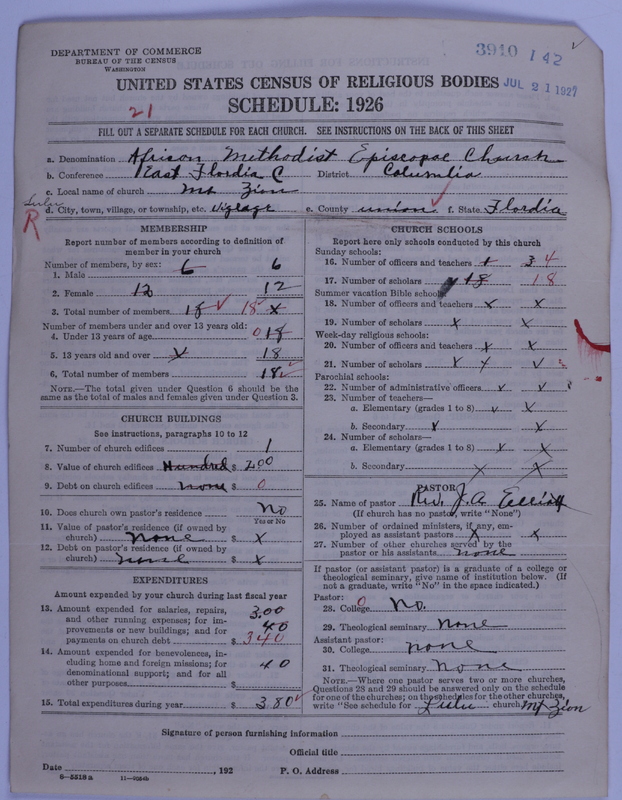 DEPARTMENT OF COMMERCE
BUREAU OF THE CENSUS
WASHINGTON
3910 142
UNITED STATES CENSUS OF RELIGIOUS BODIES
JUL 21 1927
SCHEDULE: 1926
21
FILL OUT A SEPARATE SCHEDULE FOR EACH CHURCH. SEE INSTRUCTIONS ON THE BACK OF THIS SHEET
a. Denomination African Methodist Episcopac Church
b. Conference East Flordia C District Columbia
c. Local name of church Mt Zion
Lulu
R
d. City, town, village, or township, etc. Vigeage e. County union f. State Flordia
MEMBERSHIP
Report number of members according to definition of member in your church
Number of members, by sex:
1. Male 6 6
2. Female 12 12
3. Total number of members 18 18 x
Number of members under and over 13 years old:
4. Under 13 years of age 0 18
5. 13 years old and over x 18
6. Total number of members 18
NOTE.—The total given under Question 6 should be the same as the total of males and females given under Question 3.
CHURCH BUILDINGS
See instructions, paragraphs 10 to 12
7. Number of church edifices 1
8. Value of church edifices Hundred $ 200
9. Debt on church edifices none $ 0
10. Does church own pastor's residence No
Yes or No
11. Value of pastor's residence (if owned by church) none $ x
12. Debt on pastor's residence (if owned by church) none $ x
EXPENDITURES
Amount expended by your church during last fiscal year
13. Amount expended for salaries, repairs, and other running expenses; for improvements or new buildings; and for payments on church debt 3.00 40 $ 340
14. Amount expended for benevolences, including home and foreign missions; for denominational support; and for all other purposes 40 $
15. Total expenditures during year $ 3.80
CHURCH SCHOOLS
Report here only schools conducted by this church
Sunday schools:
16. Number of officers and teachers 3 4
17. Number of scholars 18 18
Summer vacation Bible schools:
18. Number of officers and teachers x x
19. Number of scholars x x
Week-day religious schools:
20. Number of officers and teachers x x
21. Number of scholars
Parochial schools:
22. Number of administrative officers
23. Number of teachers—
a. Elementary (grades 1 to 8) x
b. Secondary x x
24. Number of scholars—
a. Elementary (grades 1 to 8) x
b. Secondary x x
PASTOR
25. Name of pastor Rev. J. A. Elliott
(If church has no pastor, write "None")
26. Number of ordained ministers, if any, employed as assistant pastors x x
27. Number of other churches served by the pastor or his assistants none
If pastor (or assistant pastor) is a graduate of a college or theological seminary, give name of institution below. (If not a graduate, write "No" in the space indicated.)
Pastor:
28. College 0 No.
29. Theological seminary None
Assistant pastor:
30. College none
31. Theological seminary None
NOTE.—Where one pastor serves two or more churches, Questions 28 and 29 should be answered only on the schedule for one of the churches; on the schedules for the other churches, write "See schedule for Lulu church Mt Zion
Signature of person furnishing information
Official title
Date , 192 P. O. Address
8—5518a 11—9054b